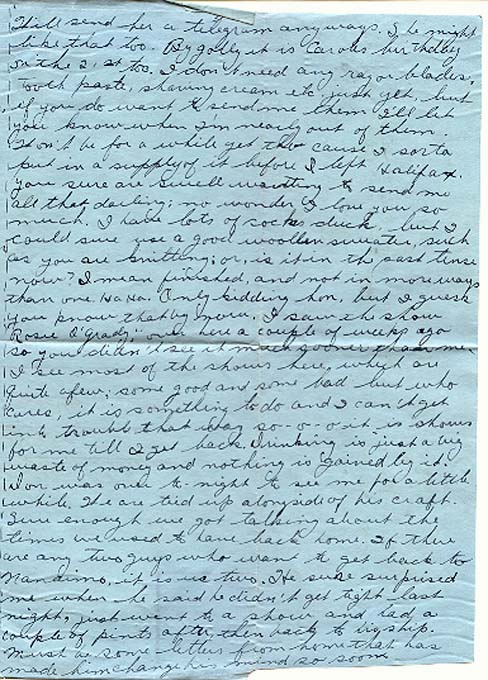 I'll send her a telegram anyways. She might
like that too. By golly it is Carols birthday
on the 21st too. I don't need any razor blades,
tooth paste, shaving cream etc just yet, but
if you do want to send me them I'll let
you know when I'm nearly out of them.
Won't be for a while yet tho cause I sorta
put in a supply of it before I left Halifax.
You sure are swell wanting to send me
all that darling; no wonder I love you so
much. I have lots of socks duck, but I
could sure use a good woollen sweater, such
as you are knitting; or, is it in the past tense
now? I mean finished, and not in more ways
than one. Ha Ha. Only kidding hon, but I guess
you know that by now. I saw the show
Rosie O'Grady; over here a couple of weeks ago
so you didn't see it much sooner than me.
I see most of the shows here, which are
quite a few; some good and some bad but who
cares, it is something to do and I can't get
into trouble that way so-o-o it is shows
for me till I get back. Drinking is just a big
waste of money and nothing is gained by it.
was over to-night to see me for a little
while. He are tied up alongside of his craft.
Sure enough we got talking about the
times we used to have back home. If there
are any two guys who want to get back to
Nanaimo, it is us two. He sure surprised
me when he said he didn't get tight last
night, just went to a show and had a
couple of pints after, then back to big ship.
Must be some letters from home that has
made him change his mind so soon